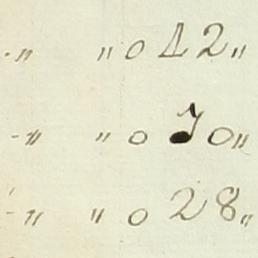 -„ „ 0 42„
-„ „ 0 70„
-„ „ 0 28„